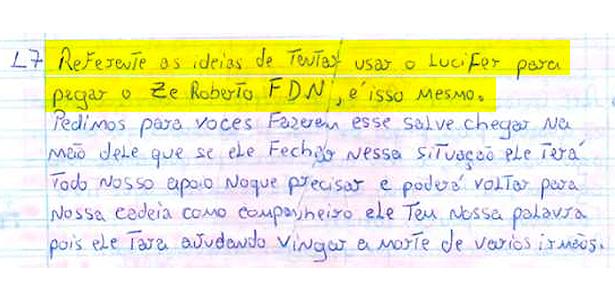 L7 Referente as ideias de Tentar usar o Lucifer para
pegar o Ze Roberto FDN, e' isso mesmo.
Pedimos para voces Fazerem esse salve chegar na
mão dele que se ele Fechar nessa situação ele Terá
Todo nosso apoio noque precisar e poderá voltar para
nossa cadeia como companheiro ele Tem nossa palavra
pois ele Tara ajudando vingar a morte de varios irmãos.